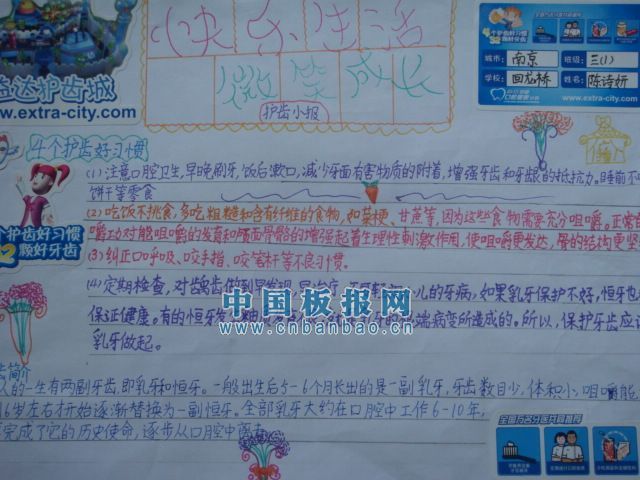 快乐生活
微笑成长
护齿小报
益达护齿城
www.extra-city.com
城市: 南京 班级: 三(1)
学校: 回龙桥 姓名: 陈诗妍
www.extra-city.com
4个护齿好习惯
(1)注意口腔卫生,早晚刷牙,饭后漱口,减少牙面有害物质的附着,增强牙齿和牙龈的抵抗力。睡前不
饼干等零食
个护齿好习惯
32颗好牙齿
(2)吃饭不挑食,多吃粗糙和含有纤维的食物,如菜梗、甘蔗等,因为这些食物需要充分咀嚼。正常的
嚼功对能咀嚼的发育和颌面骨骼的增强起着生理性刺激作用,使咀嚼更发达,骨的结构更坚
(3)纠正口呼吸、咬手指、咬笔杆等不良习惯。
(4)定期检查,对龋齿做到早发现,早治疗,儿的牙病,如果乳牙保护不好,恒牙也
保证健康。有的恒牙发端病变所造成的。所以,保护牙齿应
乳牙做起。
中国板报网
www.cnbanbao.cn
简介
人的一生有两副牙齿,即乳牙和恒牙。一般出生后5-6个月长出的是一副乳牙,牙齿数目少,体积小,咀嚼能
6岁左右才开始逐渐替换为一副恒牙。全部乳牙大约在口腔中工作6-10年,
完成了它的历史使命,逐步从口腔中